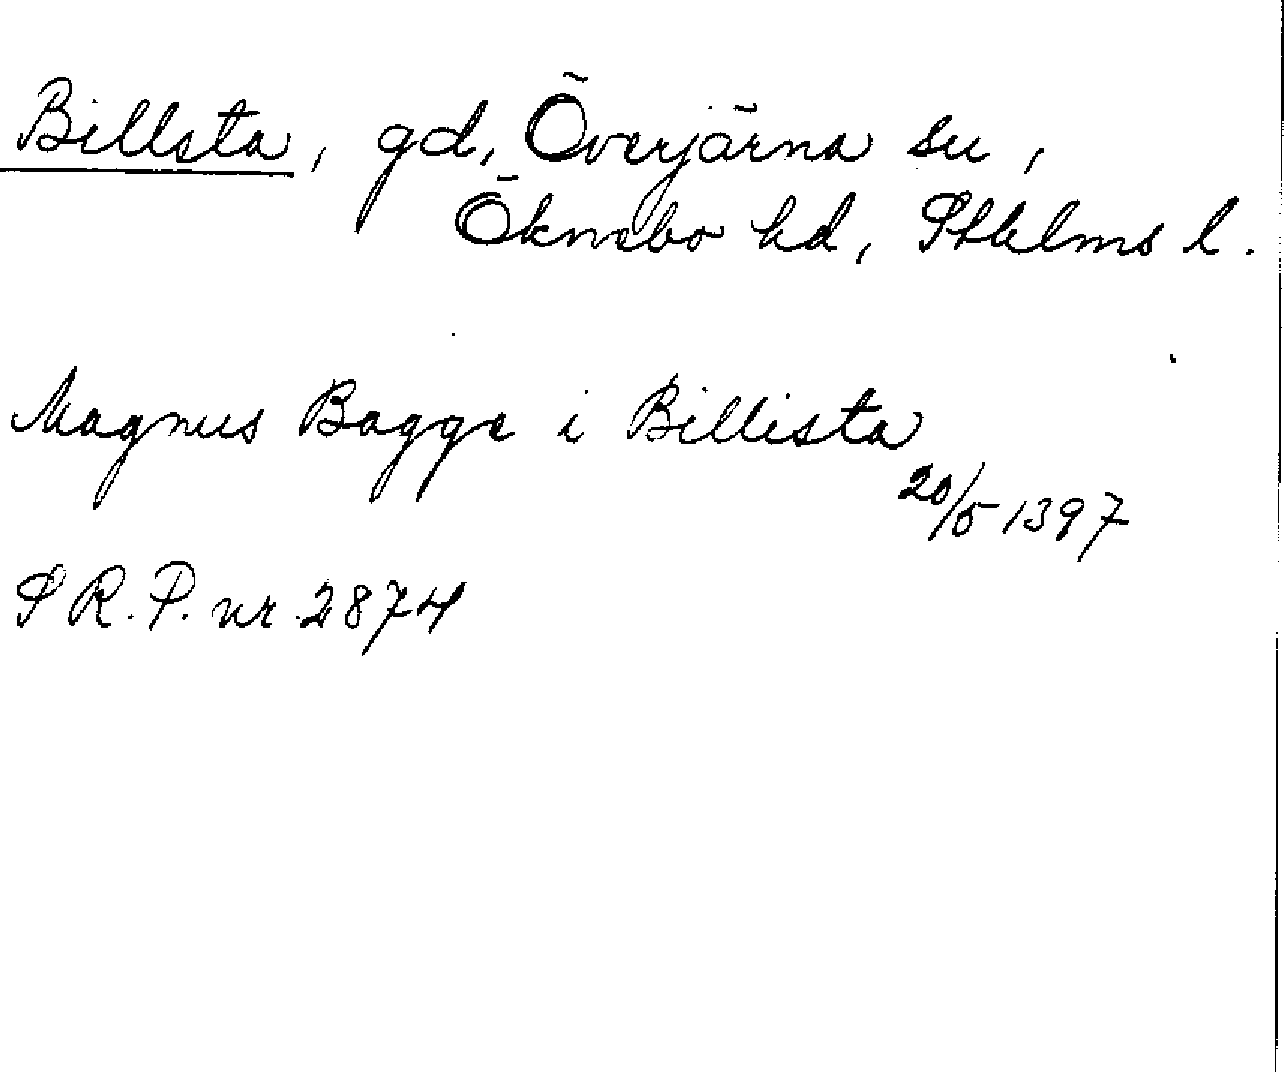 Billsta, gd, Överjärna sn,
Öknebo hd, Sthlms l.
Magnus Bagge i Billista
20/5 1397
S R. P. nr. 2874